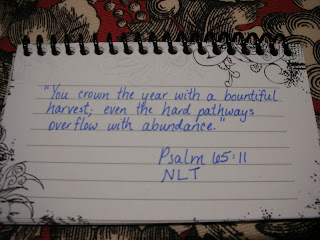 "You crown the year with a bountiful
harvest; even the hard pathways
overflow with abundance."
Psalm 65:11
NLT